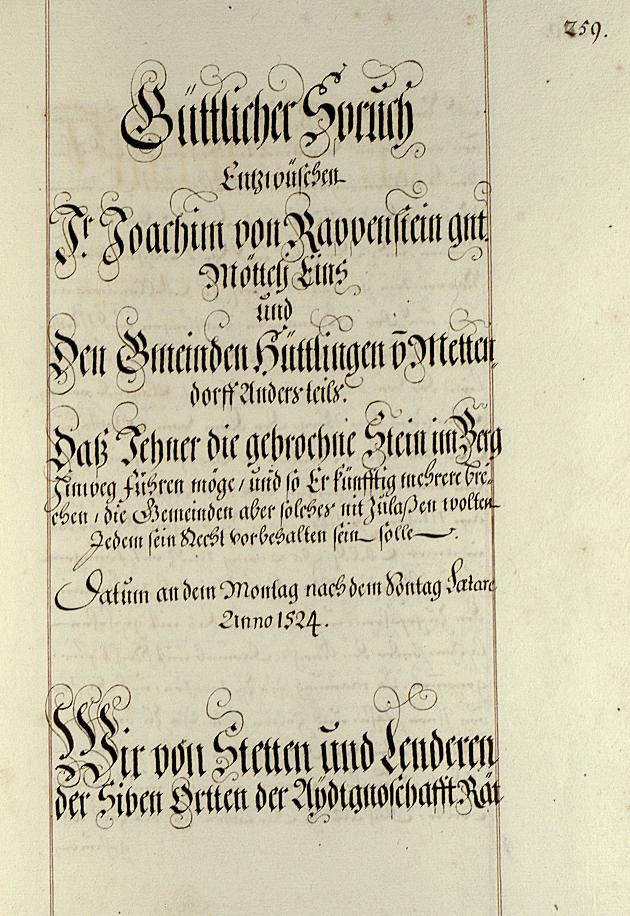 259.
Güttlicher Spruch
Entzwüschen
Jr. Joachim von Rappenstein gnt.
Mötteli Eins
und
Den Gmeinden Hüttlingen v̄ Metten
dorff Anders teils.
Daß Jehner die gebrochne Stein im Berg
hinweg führen möge / und so Er künfftig mehrere bre-
chen / die Gemeinden aber solches nit Zulaßen wolten
Jedem sein Recht vorbehalten sein solle.
Datum an dem Montag nach dem Sontag Lætare
Anno 1524.
Wir von Stetten und Lenderen
der Siben Ortten der Aÿdtgnoschafft Rät